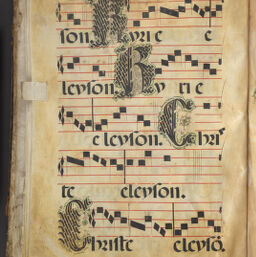 son. Kyri e e
leyson. Ky ri e
e leyson. Chri
te eleyson.
Christe eleysõ.